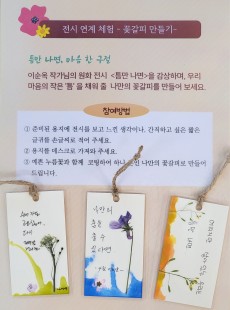 전시 연계 체험 - 꽃갈피 만들기-
틈만 나면, 마음 한 구절
이순옥 작가님의 원화 전시 <틈만 나면>을 감상하며, 우리
마음의 작은 '틈'을 채워 줄 나만의 꽃갈피를 만들어 보세요.
참여방법
① 준비된 용지에 전시를 보고 느낀 생각이나, 간직하고 싶은 짧은
글귀를 손글씨로 적어 주세요.
② 용지를 데스크로 가져와 주세요.
③ 예쁜 누름꽃과 함께 코팅하여 하나뿐인 나만의 꽃갈피로 만들어
드립니다.
작은
틈만